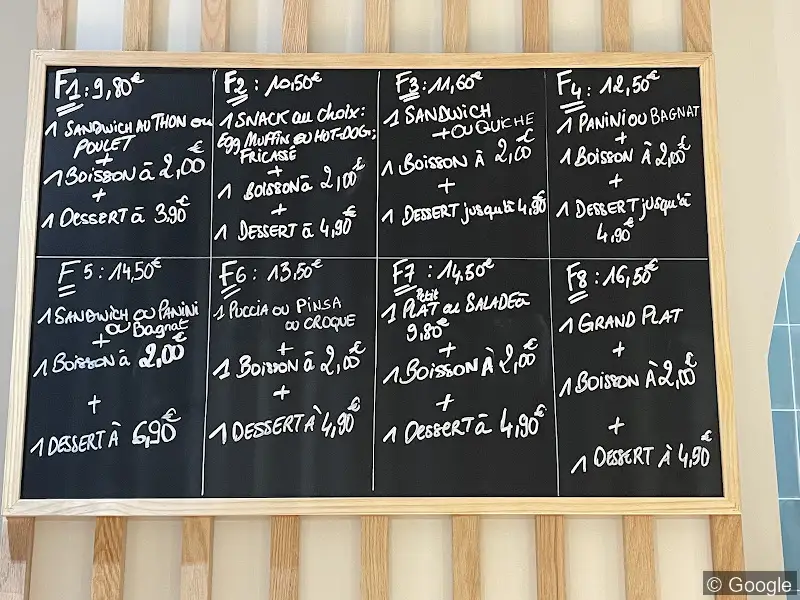 F1 : 9,80€
1 SANDWICH AU THON ou
POULET
+
1 BOISSON à 2,00€
+
1 DESSERT à 3,90€
F2 : 10,50€
1 SNACK au choix :
Egg Muffin ou HOT-DOG ;
FRICASSÉ
+
1 BOISSON à 2,00€
+
1 DESSERT à 4,90€
F3 : 11,60€
1 SANDWICH
+ OU QUICHE
1 BOISSON À 2,00€
+
1 DESSERT jusqu'à 4,90€
F4 : 12,50€
1 PANINI OU BAGNAT
+
1 BOISSON À 2,00€
+
1 DESSERT jusqu'à
4,90€
F5 : 14,50€
1 SANDWICH OU PANINI
ou Bagnat
+
1 BOISSON à 2,00€
+
1 DESSERT À 6,90€
F6 : 13,50€
1 PUCCIA ou PINSA
ou CROQUE
+
1 BOISSON à 2,00€
+
1 DESSERT À 4,90€
F7 : 14,50€
Petit
1 PLAT ou SALADE à
9,80€
+
1 BOISSON À 2,00€
+
1 DESSERT à 4,90€
F8 : 16,50€
1 GRAND PLAT
+
1 BOISSON À 2,00€
+
1 DESSERT À 4,90€
© Google